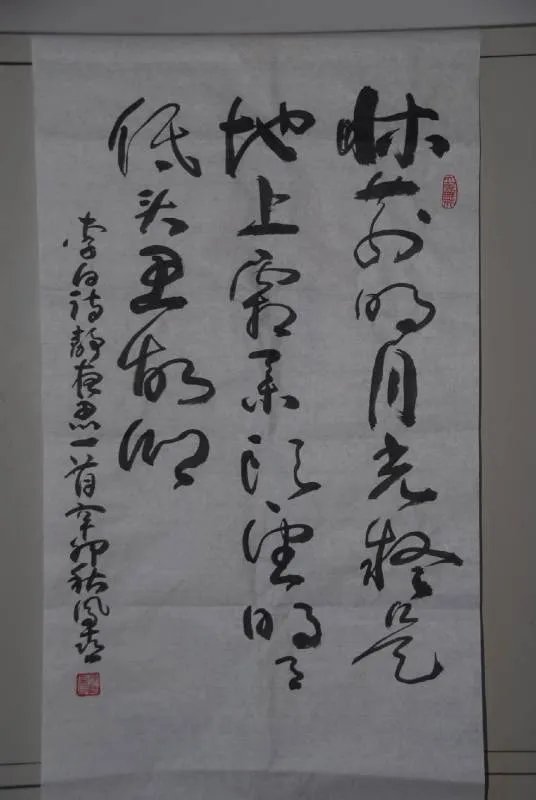 牀前明月光疑是
地上霜举頭望明月
低头思故鄉
李白詩静夜思一首辛卯秋